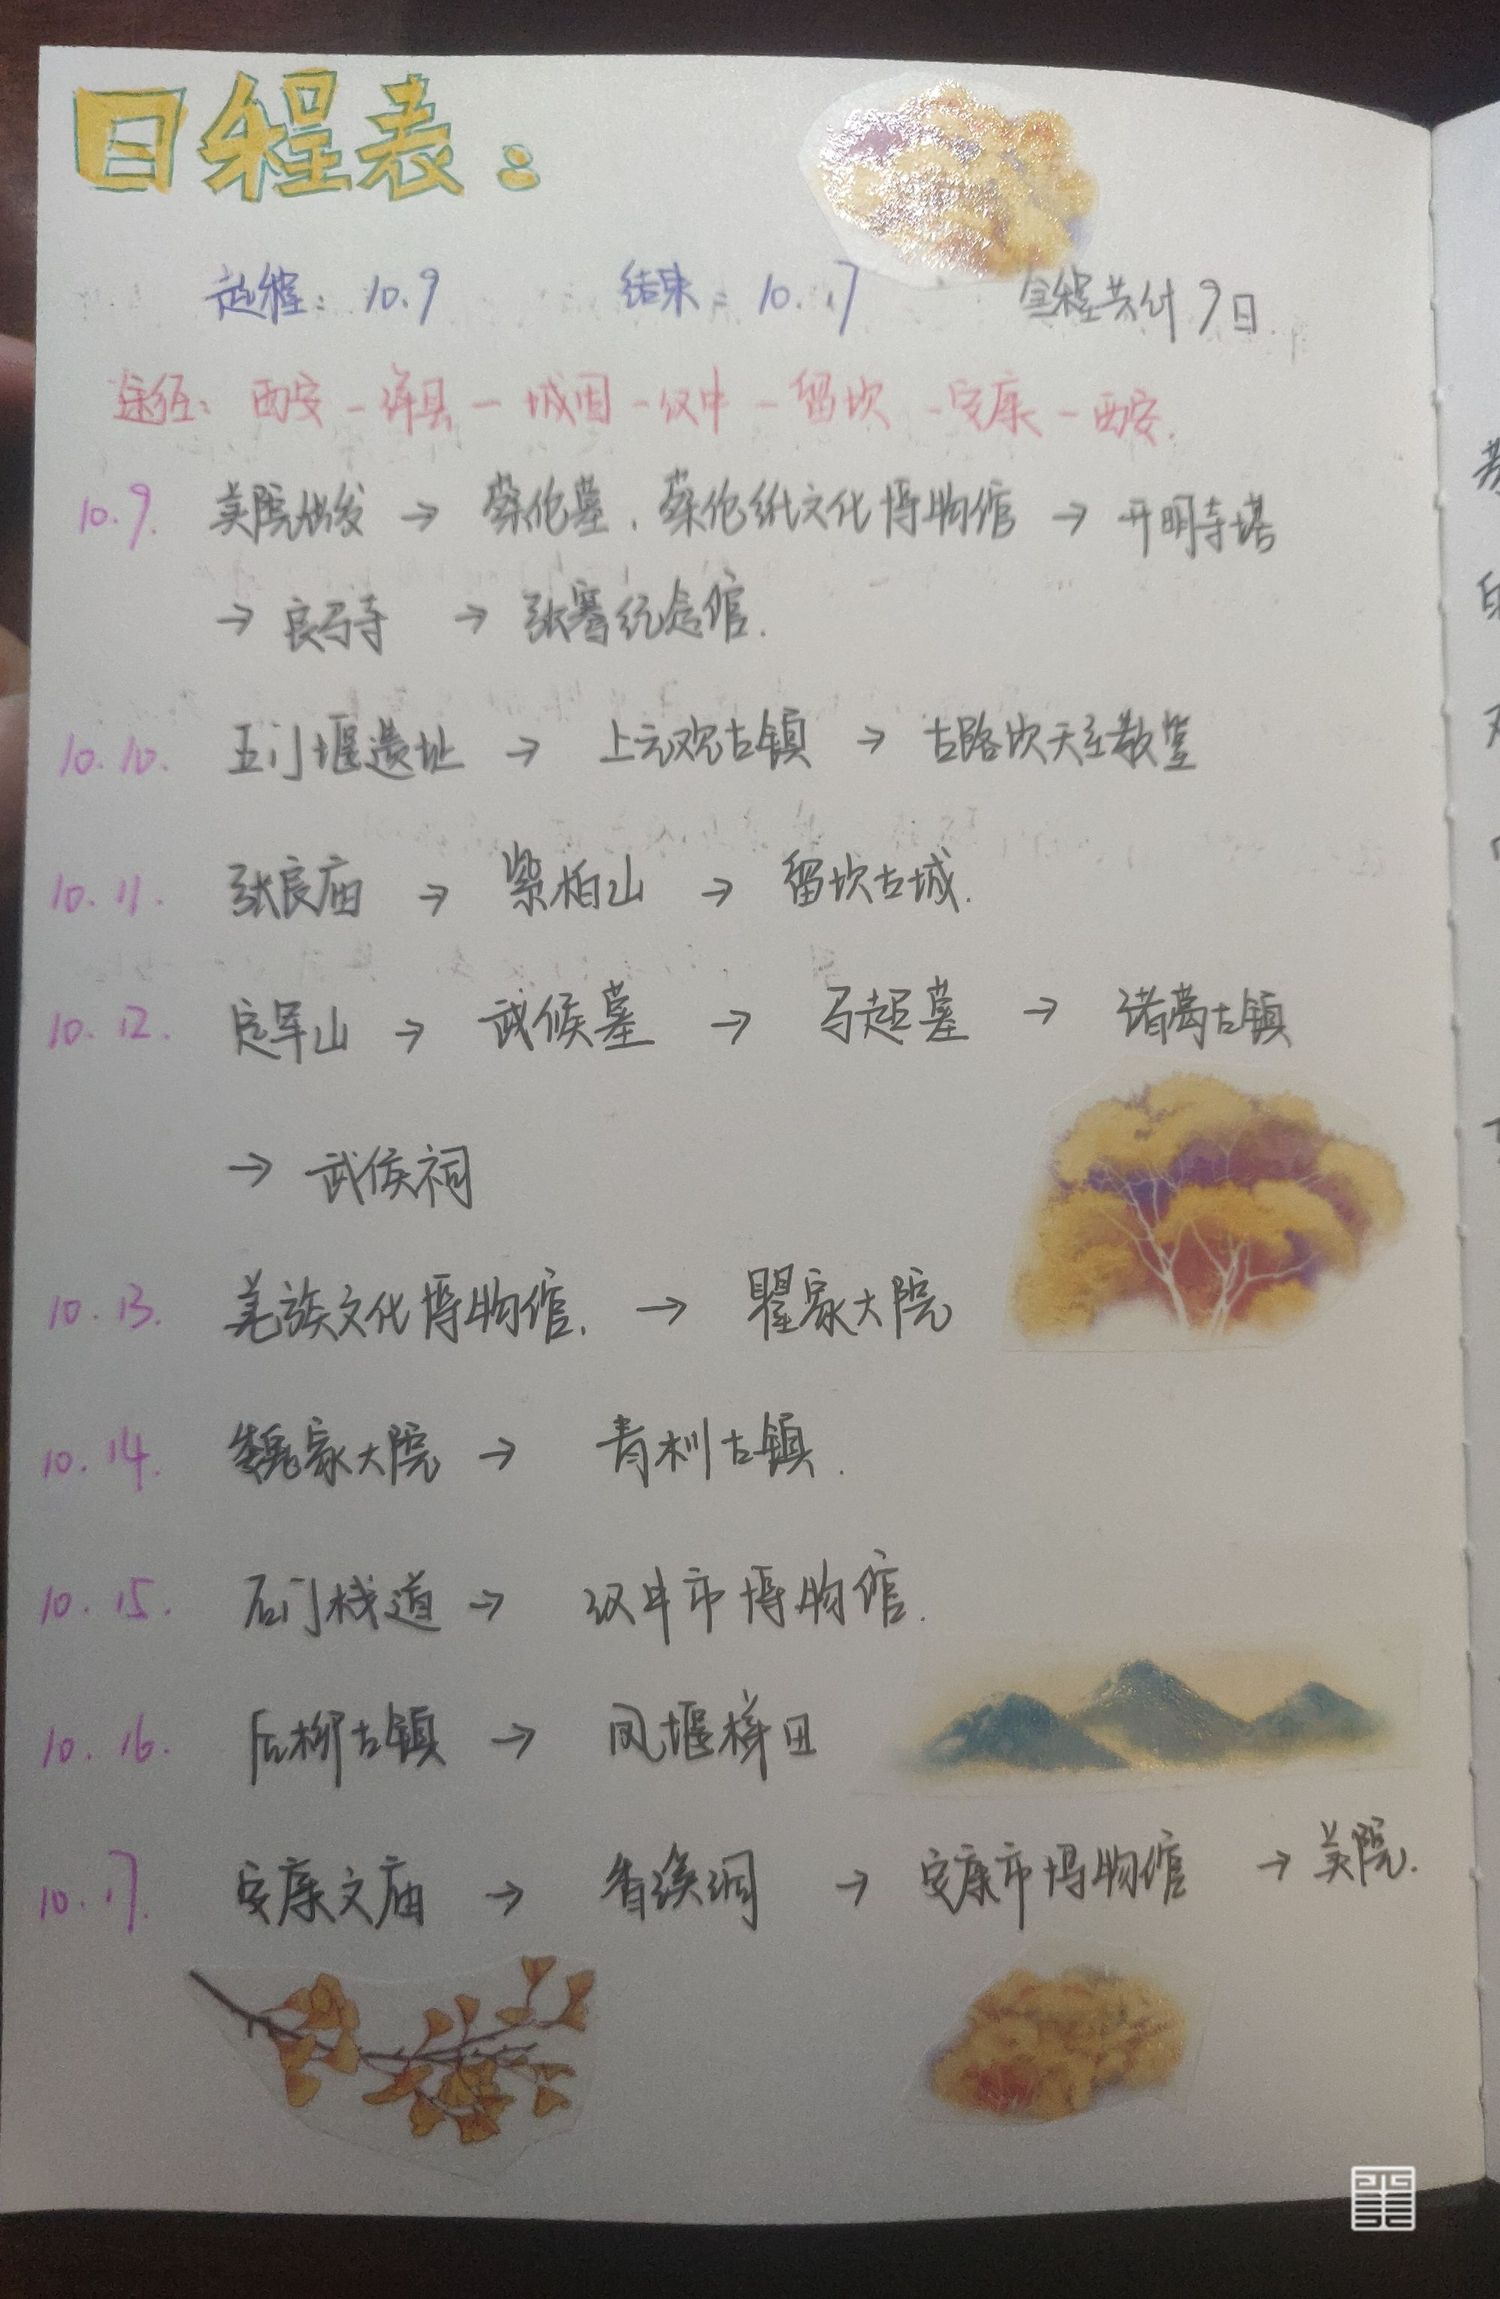 日程表：
起程：10.9 结束：10.17 全程共计9日
途径：西安-洋县-城固-汉中-留坝-安康-西安.
10.9. 美院出发 → 蔡伦墓、蔡伦纸文化博物馆 → 开明寺塔
→ 良马寺 → 张骞纪念馆.
10.10. 五门堰遗址 → 上元观古镇 → 古路坝天主教堂
10.11. 张良庙 → 紫柏山 → 留坝古城.
10.12. 定军山 → 武候墓 → 马超墓 → 诸葛古镇
→ 武侯祠
10.13. 羌族文化博物馆. → 瞿家大院
10.14. 魏家大院 → 青木川古镇.
10.15. 石门栈道 → 汉中市博物馆.
10.16. 后柳古镇 → 凤堰梯田
10.17. 安康文庙 → 香溪洞 → 安康市博物馆 → 美院.